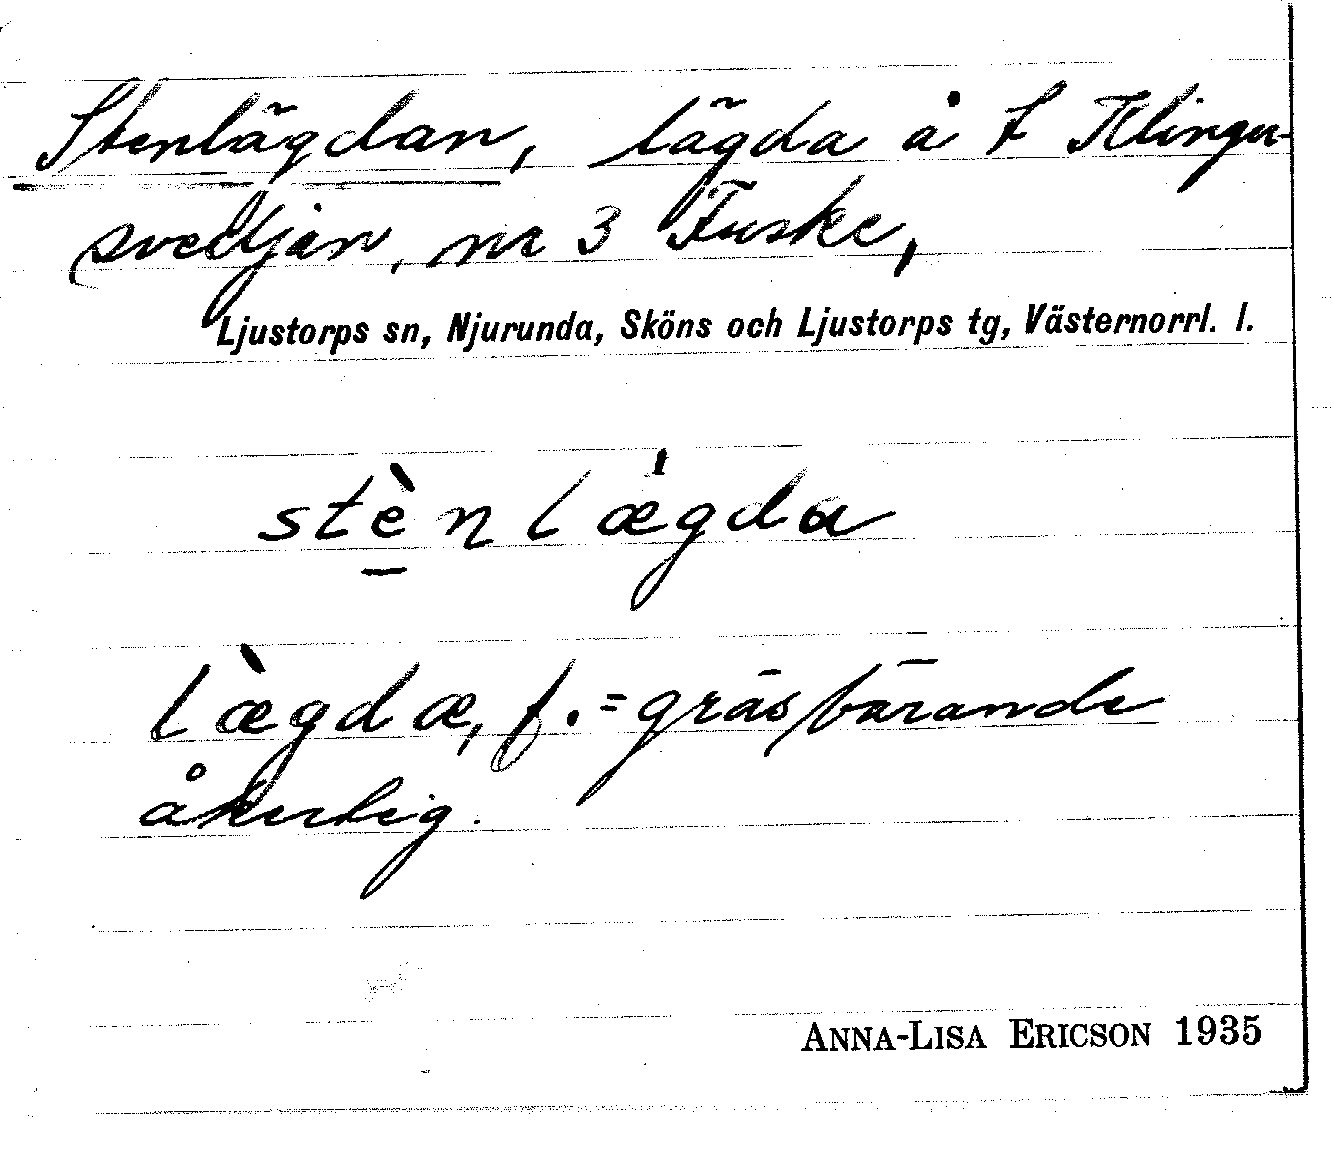 Stenlägdan, lägda å f Klinger-
svedjan, nr 3 Fuske,
Ljustorps sn, Njurunda, Sköns och Ljustorps tg, Västernorrl. l.
stèn lǽgda
lægdæ, f. = gräsbärande
åkerteg.
ANNA-LISA ERICSON 1935